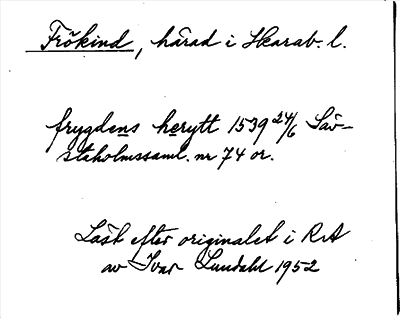 Frökind, härad i Skarab. l.
frygdens herytt 1539 24/6 Säv-
staholmssaml. nr 74 or.
Läst efter originalet i RA
av Ivar Lundahl 1952